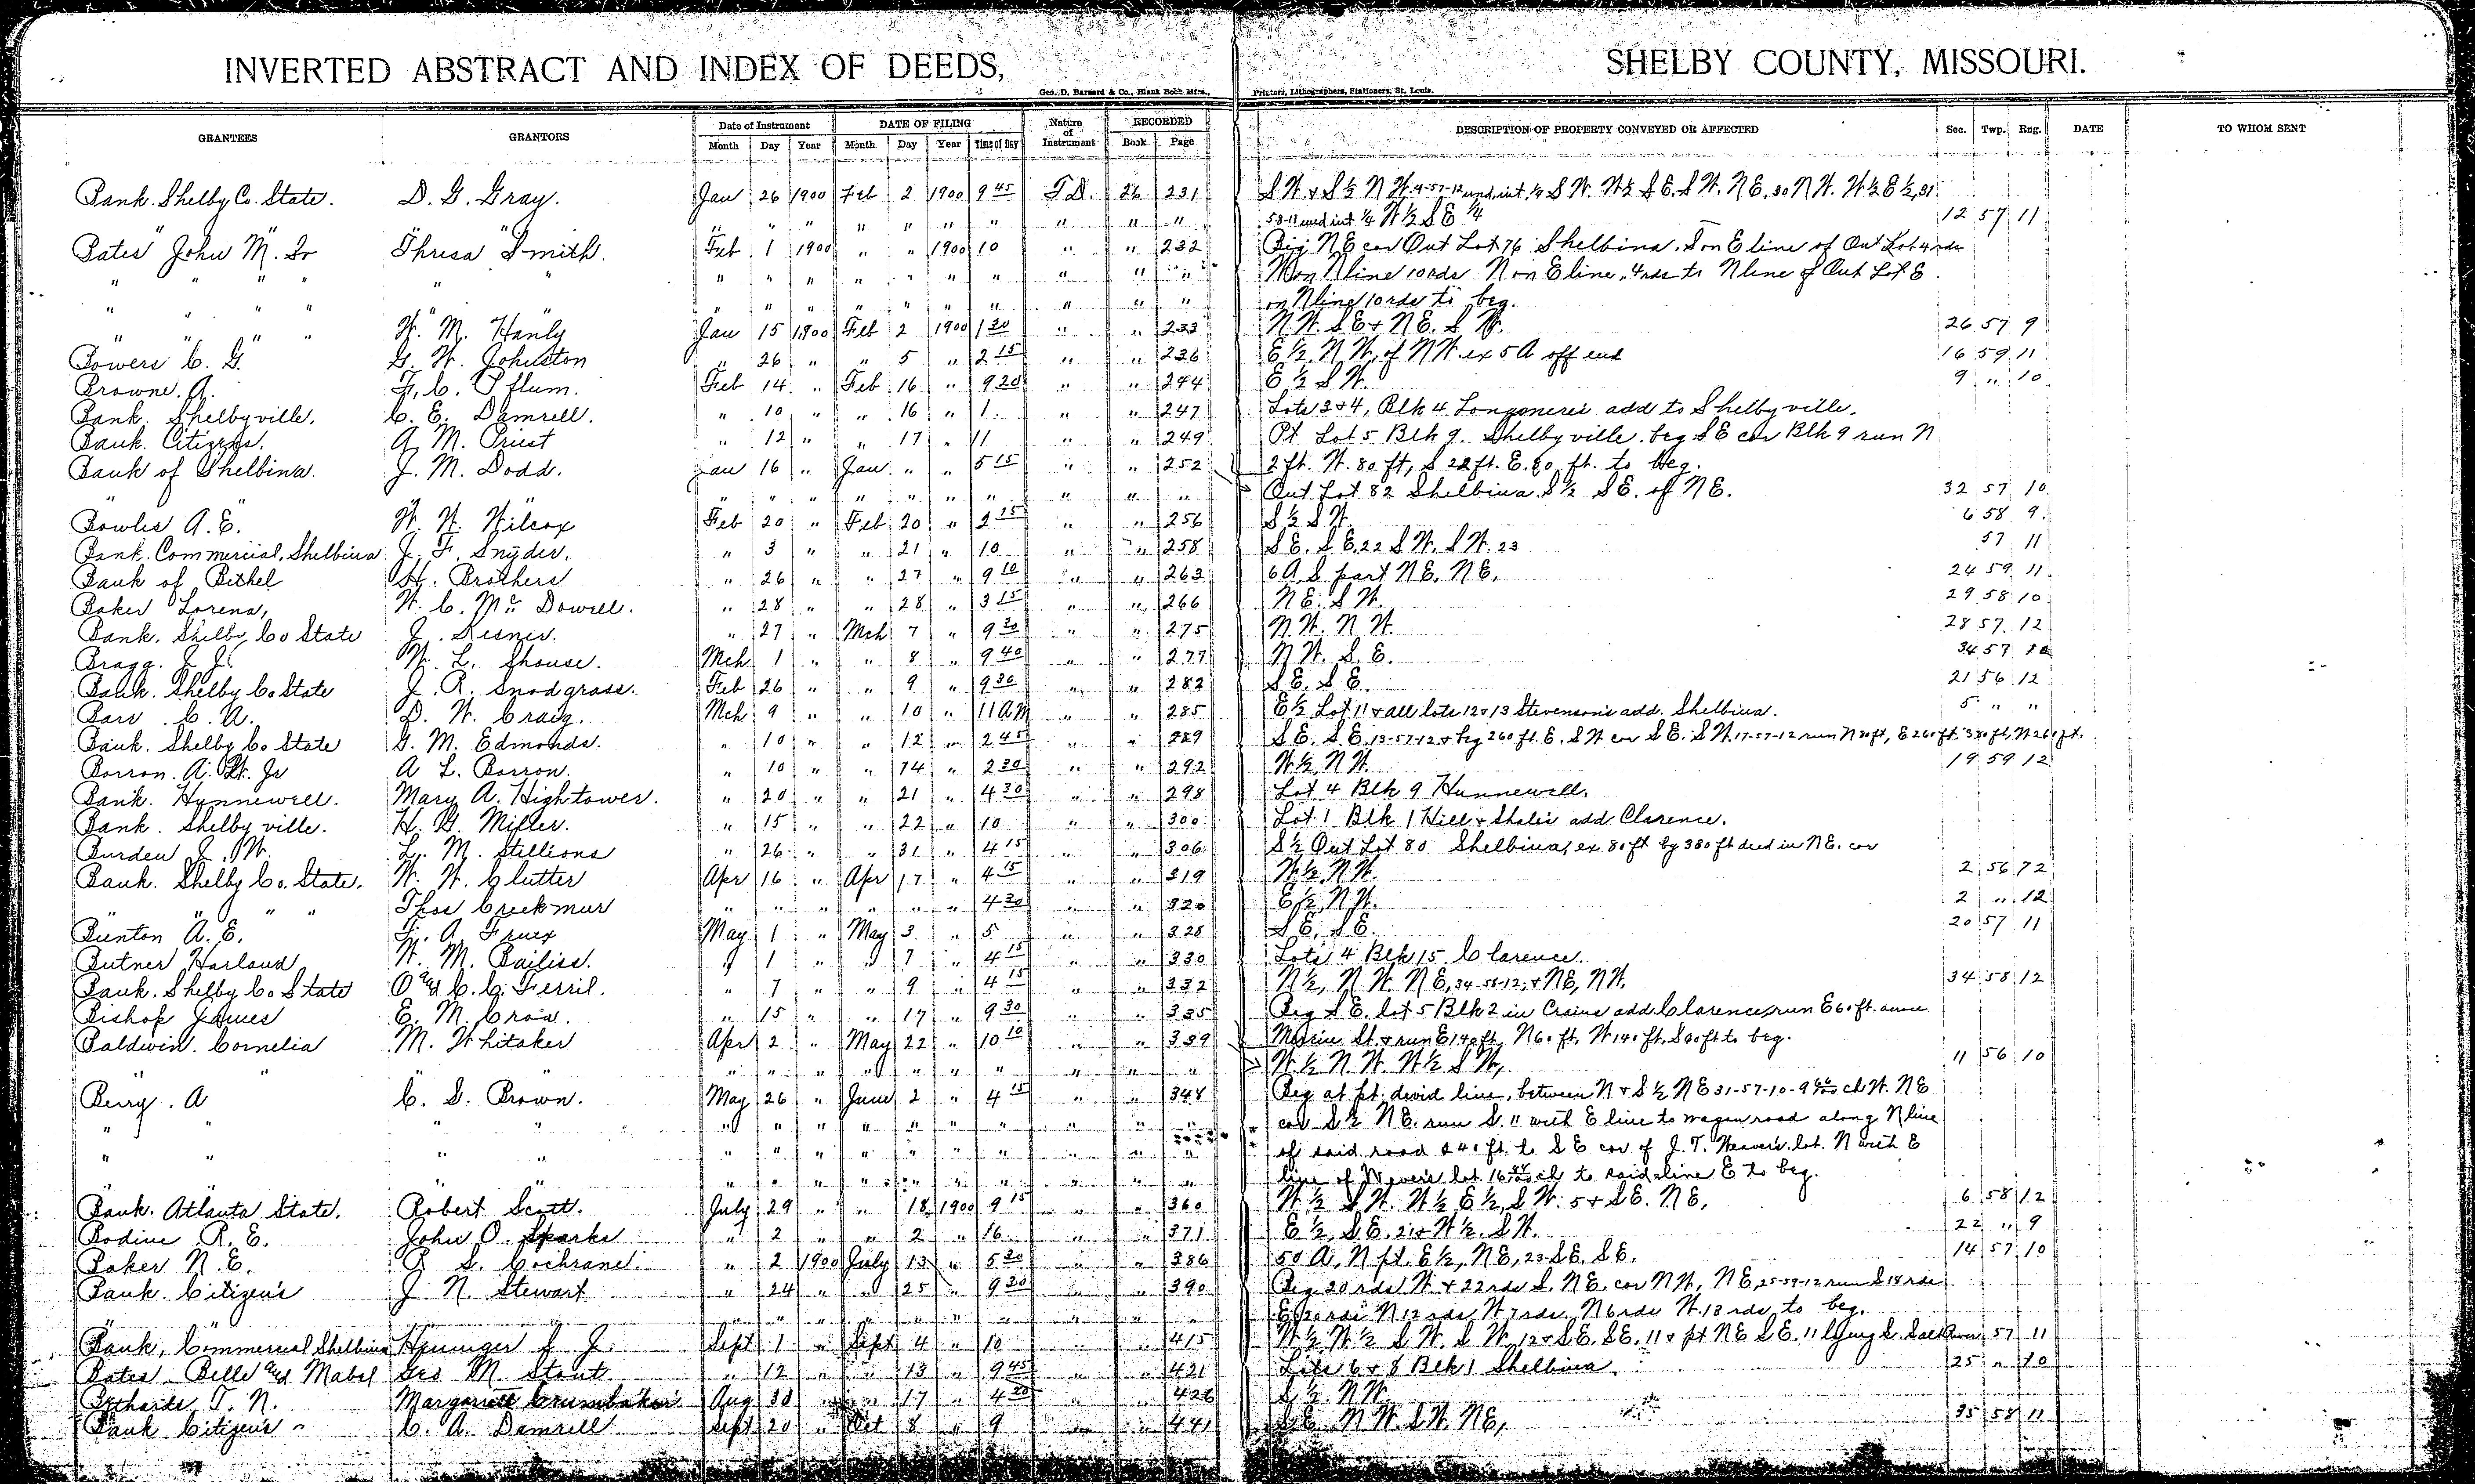 INVERTED ABSTRACT AND INDEX OF DEEDS, SHELBY COUNTY, MISSOURI.
Geo. D. Barnard & Co., Blank Book Mfrs., Printers, Lithographers, Stationers, St. Louis.
GRANTEES GRANTORS Date of Instrument Month Day Year DATE OF FILING Month Day Year Time of Day Nature of Instrument RECORDED Book Page DESCRIPTION OF PROPERTY CONVEYED OR AFFECTED Sec. Twp. Rng. DATE TO WHOM SENT
Bank. Shelby Co. State. D. G. Gray. Jan 26 1900 Feb 2 1900 9 45 T.D. 26 231 S W. & S ½ N W. 4-57-12 und. int. ¼ S W. W ½ S E. S W. N E. 30 N W. W ½ E ½, 31
" " " " " " " " " " 58-11 und int ¼ W ½ S E ¼ 12 57 11
Bates John M. Sr Thresa Smith. Feb 1 1900 " " 1900 10 " " 232 Beg. N E cor Out Lot 76 Shelbina. S on E line of Out Lot 4 rds
" " " " " " " " " " " " " " " W on N line 10 rds N on E line, 4 rds to N line of Out Lot E
" " " " " " " " " " " " " " " on N line 10 rds to beg.
" " " " W. M. Hanly Jan 15 1900 Feb 2 1900 1 30 " " 233 N W. S E & N E. S W. 26 57 9
Bowers C. G. G. W. Johnston " 26 " " 5 " 2 15 " " 236 E ½ N W. of N W. ex 5 A off end 16 59 11
Browne. A. F. C. Pflum. Feb 14 " Feb 16 " 9 20 " " 244 E ½ S W. 9 " 10
Bank. Shelbyville. C. E. Damrell. " 10 " " 16 " 1 " " 247 Lots 3 & 4, Blk 4 add to Shelbyville.
Bank. Citizens. A. M. Priest " 12 " " 17 " 11 " " 249 Pt Lot 5 Blk 9. Shelbyville. beg S E cor Blk 9 run N
Bank of Shelbina. J. M. Dodd. Jan 16 " Jan " " 5 15 " " 252 2 ft. W. 80 ft, S 22 ft. E. 80 ft. to beg.
" " " " " " " " " " " " Out Lot 82 Shelbina S ½ S E. of N E. 32 57 10
Bowles A. E. W. W. Wilcox Feb 20 " Feb 20 " 2 15 " " 256 S ½ S W. 6 58 9
Bank. Commercial, Shelbina J. F. Snyder. " 3 " " 21 " 10 " " 258 S E. S E. 22 S W. S W. 23 57 11
Bank of Bethel H. Brothers " 26 " " 27 " 9 10 " " 263 6 A S part N E. N E. 24 59 11
Baker Lorena, W. C. Mc Dowell. " 28 " " 28 " 3 15 " " 266 N E. S W. 29 58 10
Bank. Shelby Co State J. " 27 " Mch 7 " 9 30 " " 275 N W. N W. 28 57 12
Bragg. J. J. W. L. Shouse. Mch 1 " " 8 " 9 40 " " 277 N W. S. E. 34 57 10
Bank. Shelby Co State J. R. Snodgrass. Feb 26 " " 9 " 9 30 " " 282 S E. S E. 21 56 12
Barr. C. A. D. W. Craig. Mch 9 " " 10 " 11 AM " " 285 E ½ Lot 11 & all lots 12 & 13 Stevenson's add. Shelbina. 5 " "
Bank. Shelby Co State G. M. Edmonds. " 10 " " 12 " 2 45 " " 289 S E. S E. 13-57-12 & beg 260 ft. E. S W cor S E. S W. 17-57-12 run N ft, E 260 ft. ft, W 260 ft.
Borron. A. W. Jr A L. Borron. " 10 " " 14 " 2 30 " " 292 W ½, N W. 19 59 12
Bank. Hunnewell. Mary A. Hightower. " 20 " " 21 " 4 30 " " 298 Lot 4 Blk 9 Hunnewell.
Bank. Shelbyville. H. G. Miller. " 15 " " 22 " 10 " " 300 Lot 1 Blk 1 Hill & Shale's add Clarence.
Burden J. W. L. M. Stillions " 26 " " 31 " 4 15 " " 306 S ½ Out Lot 80 Shelbina, ex 80 ft by 330 ft deed in N E. cor
Bank. Shelby Co. State. W. W. Clutter Apr 16 " Apr 17 " 4 15 " " 319 W ½ N W. 2 56 72
" " " " Thos Creekmur " " " " " " 4 30 " " 320 E ½, N W. 2 " 12
Bunton A. E. F. A. Truex May 1 " May 3 " 5 " " 328 S E. S E. 20 57 11
Butner Harland W. M. Bailiss. " 1 " " 7 " 4 15 " " 330 Lots 4 Blk 15 Clarence.
Bank. Shelby Co State O and C. C. Ferril. " 7 " " 9 " 4 15 " " 332 N ½, N W. N E, 34-58-12, & N E, N W. 34 58 12
Bishop James E. M. Crow. " 15 " " 17 " 9 30 " " 335 Beg S E. lot 5 Blk 2 in Crains add Clarence, run E 60 ft. across
Baldwin. Cornelia M. Whitaker Apr 2 " May 22 " 10 10 " " 339 St. & run E 140 ft, N 60 ft, W 140 ft, S 60 ft to beg.
" " " " " " " " " " " " W ½ N W. W ½ S W, 11 56 10
Berry. A C. S. Brown. May 26 " June 2 " 4 15 " " 348 Beg at pt. devid line, between N & S ½ N E 31-57-10-9 ch W. N E
" " " " " " " " " " " " " " cor S ½ N E. run S. 11 with E line to wagon road along N line
" " " " " " " " " " " " " " of said road 240 ft. to S E cor of J. T. Weaver's lot. N with E
" " " " " " " " " " " " line of Weaver's lot 16 ch to said line E to beg.
Bank. Atlanta State. Robert Scott. July 29 " " 18 1900 9 15 " " 360 W ½ S W. W ½ E ½, S W. 5 & S E. N E, 6 58 12
Bodine R. E. John O. Sparks " 2 " " 2 " 16 " " 371 E ½, S E. 21 & W ½. S W. 22 " 9
Baker N. E. R S. Cochrane. " 2 1900 July 13 " 5 30 " " 386 50 A, N pt. E ½, N E, 23-S E. S E. 14 57 10
Bank. Citizen's J. N. Stewart " 24 " " 25 " 9 30 " " 390 Beg 20 rds W. & 22 rds S. N E. cor N W, N E, 25-59-12 run S 18 rds
" " " " " " " " " " " E 20 rds N 12 rds W 7 rds. N 6 rds W. 13 rds, to beg.
Bank, Commercial Shelbina J. J. Sept 1 " Sept 4 " 10 " " 415 W ½ W ½ S W. S W, 12 & S E. S E. 11 & pt N E S E. 11 lying S. Salt River 57 11
Bates Belle and Mabel Geo M. Stout " 12 " " 13 " 9 45 " " 421 Lots 6 & 8 Blk 1 Shelbina. 25 " 10
T. N. Margarett Crumbaker Aug 30 " " 17 " 4 20 " " 426 S ½ N W.
Bank Citizen's C. A. Damrell Sept 20 " Oct 8 " 9 " " 441 S E. N W. S W. N E, 35 58 11